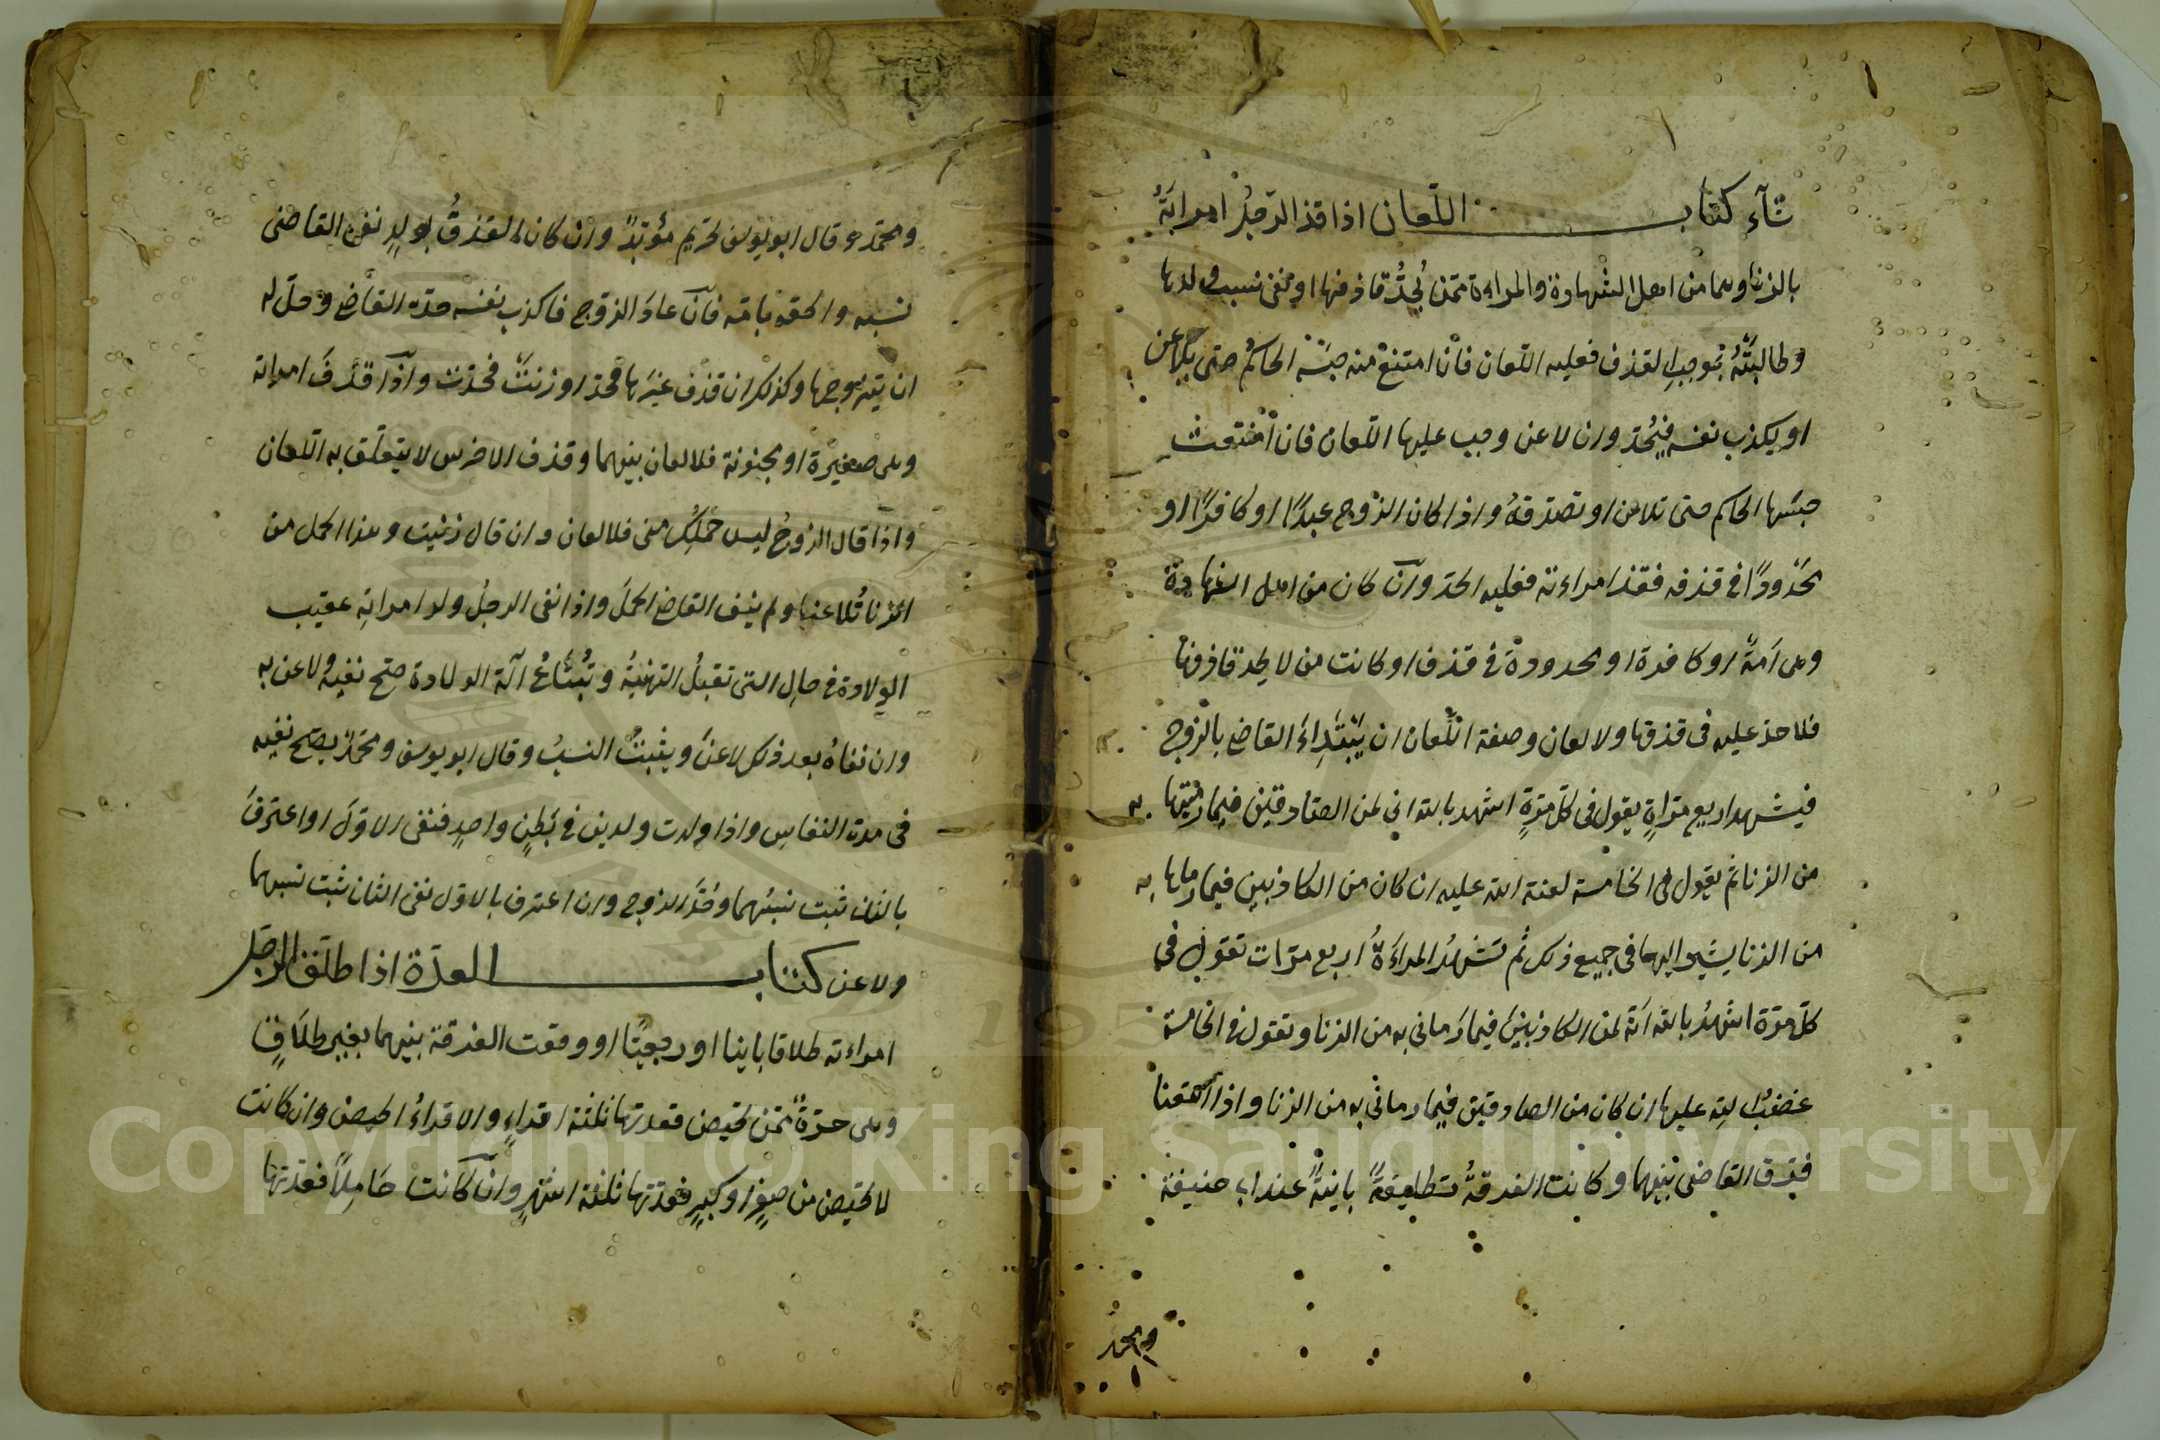 شآء كتاب اللّعان اذا قذ الرّجلُ امراتَهُ
بالزنا وهما من اهل الشهادة والمراءة ممّن يُحدُّ قاذفها او نفى نسب ولدها
وطالبَتْهُ بموجب القذف فعليه اللّعان فاْن امتنع منه حبَسَهُ الحاكمُ حتى يلاعن
او يكذب نفسه فيُحدّ وان لاعن وجب عليها اللّعان فان امتنعت
حبسَها الحاكم حتى تلاعن او تصدّقهُ واذا كان الزّوج عبدًا او كافرًا او
محْدُودًا فى قذف فقذ امراءته فعليه الحدّ وان كان من اهل الشهادة
وهى اَمةٌ او كافرة او محدودة فى قذف او كانت من لا يحد قاذفها
فلا حدّ عليه فى قذفها ولا لعان وصفة اللّعان ان يَبْتَدِاءَ القاضى بالزّوج
فيشهد اربع مرّاةٍ يقول فى كلّ مرّةٍ اشهد بالله انى لمن الصّادقين فيما رَمَيْتها به
من الزنا ثم يقول فى الخامسة لعنة الله عليه ان كان من الكاذبين فيما رماها به
من الزنا يشير اليها فى جميع ذلك ثم تشهدُ المراءَةُ اربع مرّات تقول فى
كلّ مرّة اشهدُ بالله اَنّهُ لمن الكاذبينَ فيما رَمانى به من الزنا وتقول فى الخامسة
غضبُ الله عليها ان كان من الصادقين فيما رمانى به من الزنا واذا التعنا
فرّق القاضى بينهما وكانت الفرقةُ تطليقةً باينةً عند ابى حنيفة
ومحمّد
ومحمّد وقال ابو يوسف تحريم مؤبّدٌ وان كان القذفُ بولدٍ نفى القاضى
نسبه والحقه بامّه فانْ عادَ الزوّج فاكذب نفسه حدّه القاضى وحلّ له
ان يتزوجها وكذلك ان قذف غيرَها فحدّ او زنتْ فحدّت واذا قذفَ امراته
وهى صغيرة او مجنونة فلا لعان بينهما وقذف الاخرس لا يتعلّق به اللّعان
واذا قال الزوجُ ليس حَملُكِ منى فلا لعان وان قال زنيت وهذا الحمل من
الزنا تلاعنا ولم ينف القاضى الحملَ واذا نفى الرجلُ ولد امراتِه عقيب
الولادة فى حالِ التى تقبلُ التهنيةُ وتُبْتَاعُ آلة الولادة صحّ نفيهُ ولاعن به
وان نفاهُ بعد ذلك لاعنَ ويثبتُ النسبُ وقال ابو يوسف ومحمّدٌ يصحّ نفيه
فى مدة النفاسِ واذا ولدت ولدين فى بَطنٍ واحدٍ فنفى الاوّلَ واعترفَ
بالثانى ثبت نسبُهما وحُدَّ الزوج وان اعترف بالاوّل نفى الثان ثبت نسبهما
ولاعن كتاب العدّة اذا طلّق الرّجل
امراءته طلاقا باينا او رجعيّا او وقعت الفرقة بينهما بغير طلاقٍ
وهى حرّةٌ ممّن تحيض فعدتها ثلثة اقراءٍ والاقراءُ الحيض وان كانت
لا تحيض من صغرٍ او كبرٍ فعدّتها ثلثة اشهرٍ وان كانت حَامِلاً فعدّتها
Copyright © King Saud University